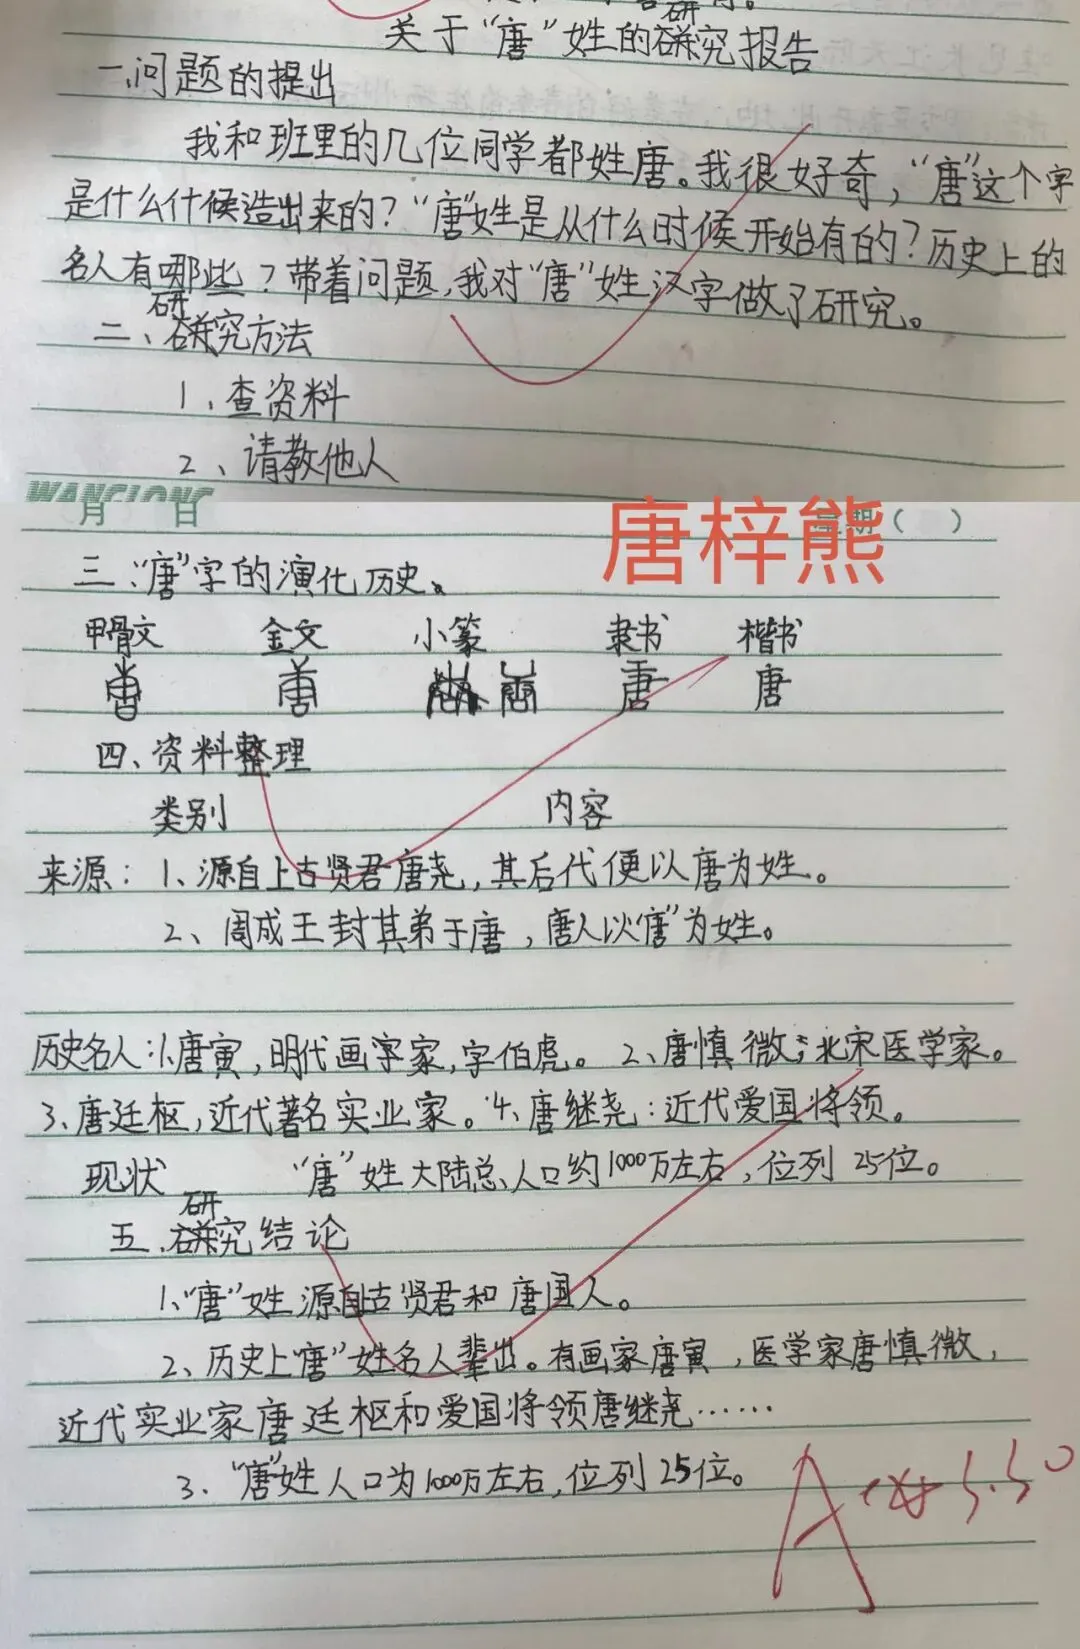 关于“唐”姓的研究报告
一、问题的提出
我和班里的几位同学都姓唐。我很好奇，“唐”这个字
是什么什候造出来的？“唐”姓是从什么时候开始有的？历史上的
名人有哪些？带着问题，我对“唐”姓汉字做了研究。
二、研究方法
1、查资料
2、请教他人
WANGLONG
月 日 星期（ ）
唐梓熊
三、“唐”字的演化历史。
甲骨文 金文 小篆 隶书 楷书
唐 唐
四、资料整理
类别 内容
来源：1、源自上古贤君唐尧，其后代便以唐为姓。
2、周成王封其弟于唐，唐人以“唐”为姓。
历史名人：1、唐寅，明代画字家，字伯虎。 2、唐慎微；北宋医学家。
3、唐廷枢，近代著名实业家。4、唐继尧：近代爱国将领。
现状 “唐”姓大陆总人口约1000万左右，位列25位。
五、研究结论
1、“唐”姓源自古贤君和唐国人。
2、历史上“唐”姓名人辈出。有画家唐寅，医学家唐慎微，
近代实业家唐廷枢和爱国将领唐继尧……
3、“唐”姓人口为1000万左右，位列25位。
A
5.30